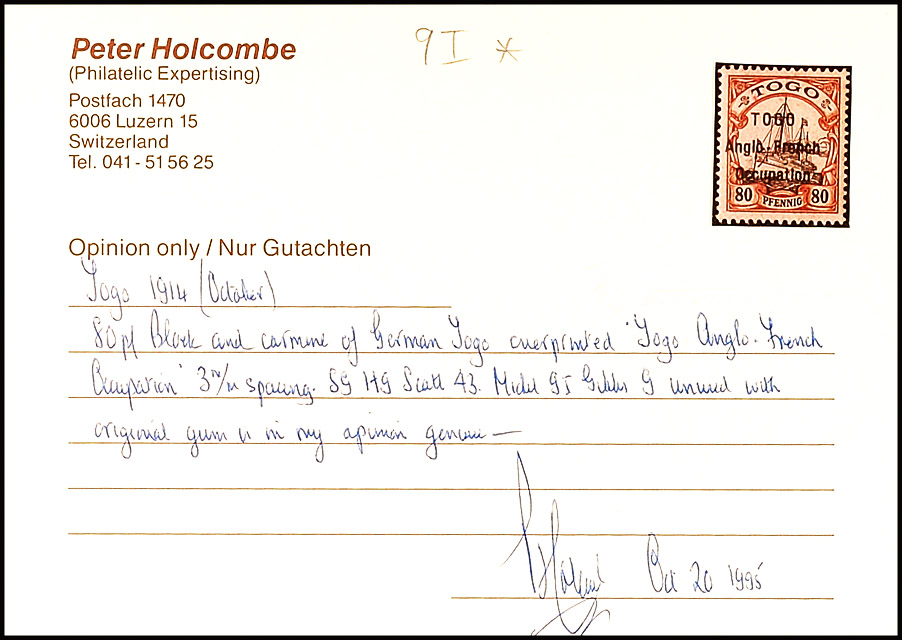 Peter Holcombe
(Philatelic Expertising)
Postfach 1470
6006 Luzern 15
Switzerland
Tel. 041 - 51 56 25
9 I *
TOGO
TOGO
Anglo-French
Occupation
80 PFENNIG 80
Opinion only / Nur Gutachten
Togo 1914 (October)
80pf Black and carmine of German Togo overprinted 'Togo Anglo-French
Occupation' 3m/m spacing. SG H9 Scott 43. Michel 9I Gibbs 9 unused with
original gum is in my opinion genuine —
Holcombe Oct 20 1995